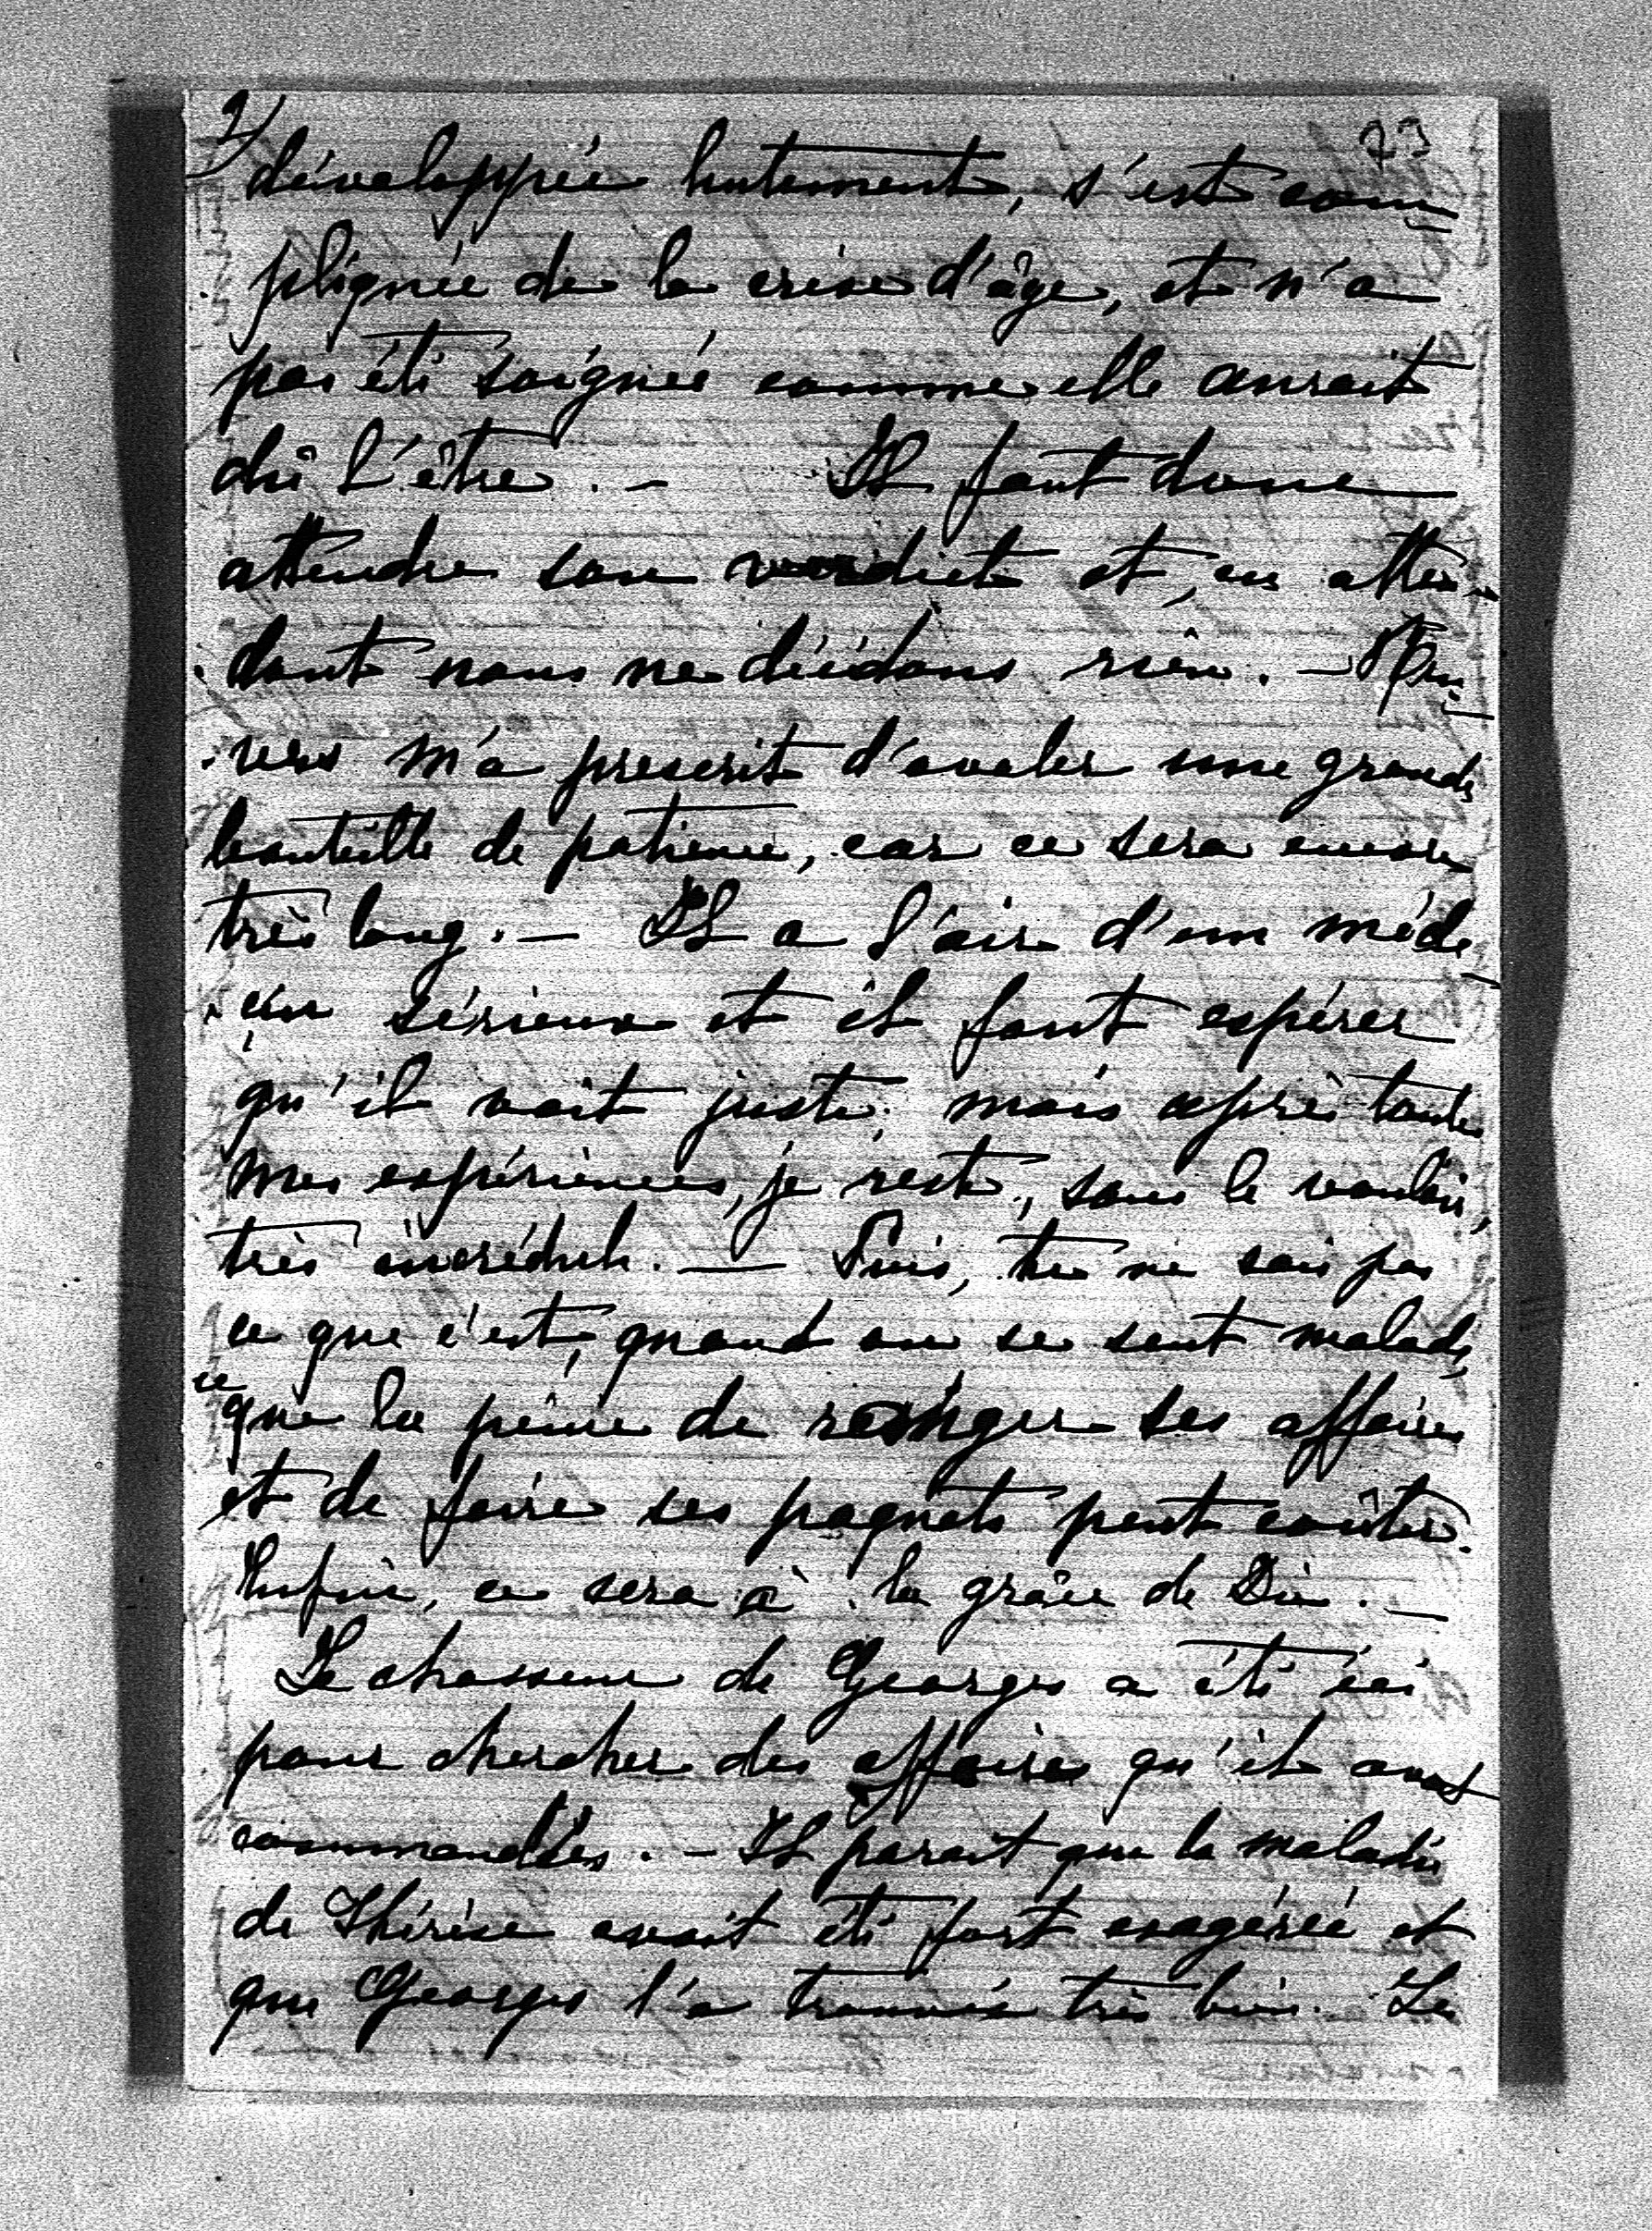 2/ 73
développée lentement, s'est com
pliquée de la crise d'âge, et n'a
pas été soignée comme elle aurait
dû l'être. - Il faut donc
attendre son verdict et, en atten-
dant nous ne décidons rien. -
vers m'a prescrit d'avaler une grande
bouteille de patience, car ce sera encore
très long. - Il a l'air d'un méde
cin sérieux et il faut espérer
qu'il voit juste; mais après toutes
mes expériences, je reste, sans le vouloir,
très incrédule. - Puis, tu ne sais pas
ce que c'est, quand on se sent malade,
ce que la peine de ranger ses affaires
et de faire ses paquets peut coûter.
Enfin, ce sera à la grâce de Dieu. -
Le chasseur de Georges a été ici
pour chercher des affaires qu'il avait
commandées. - Il paraît que la maladie
de Thérèse avait été fort exagérée et
que Georges l'a trouvée très bien. Le